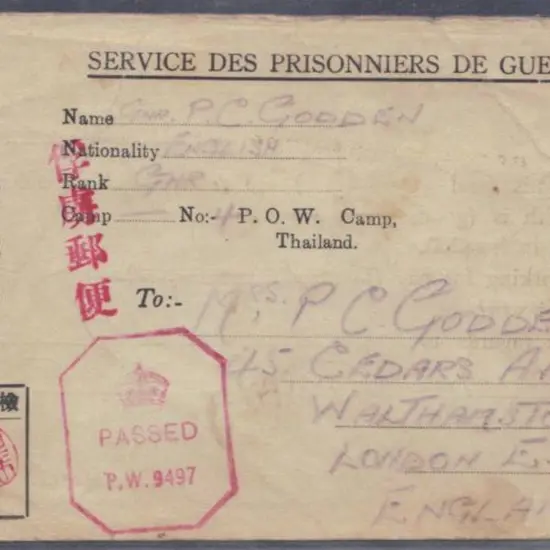 SERVICE DES PRISONNIERS DE GUE
Name GNR. P. C. GODDEN
Nationality ENGLISH
Rank GNR
Camp — No:- 4 P. O. W. Camp,
Thailand.
俘虜郵便
To:- MRS. P C GODDE
45 CEDARS A
WALTHAMST
LONDON E.
ENGLA
檢
PASSED
P.W. 9497